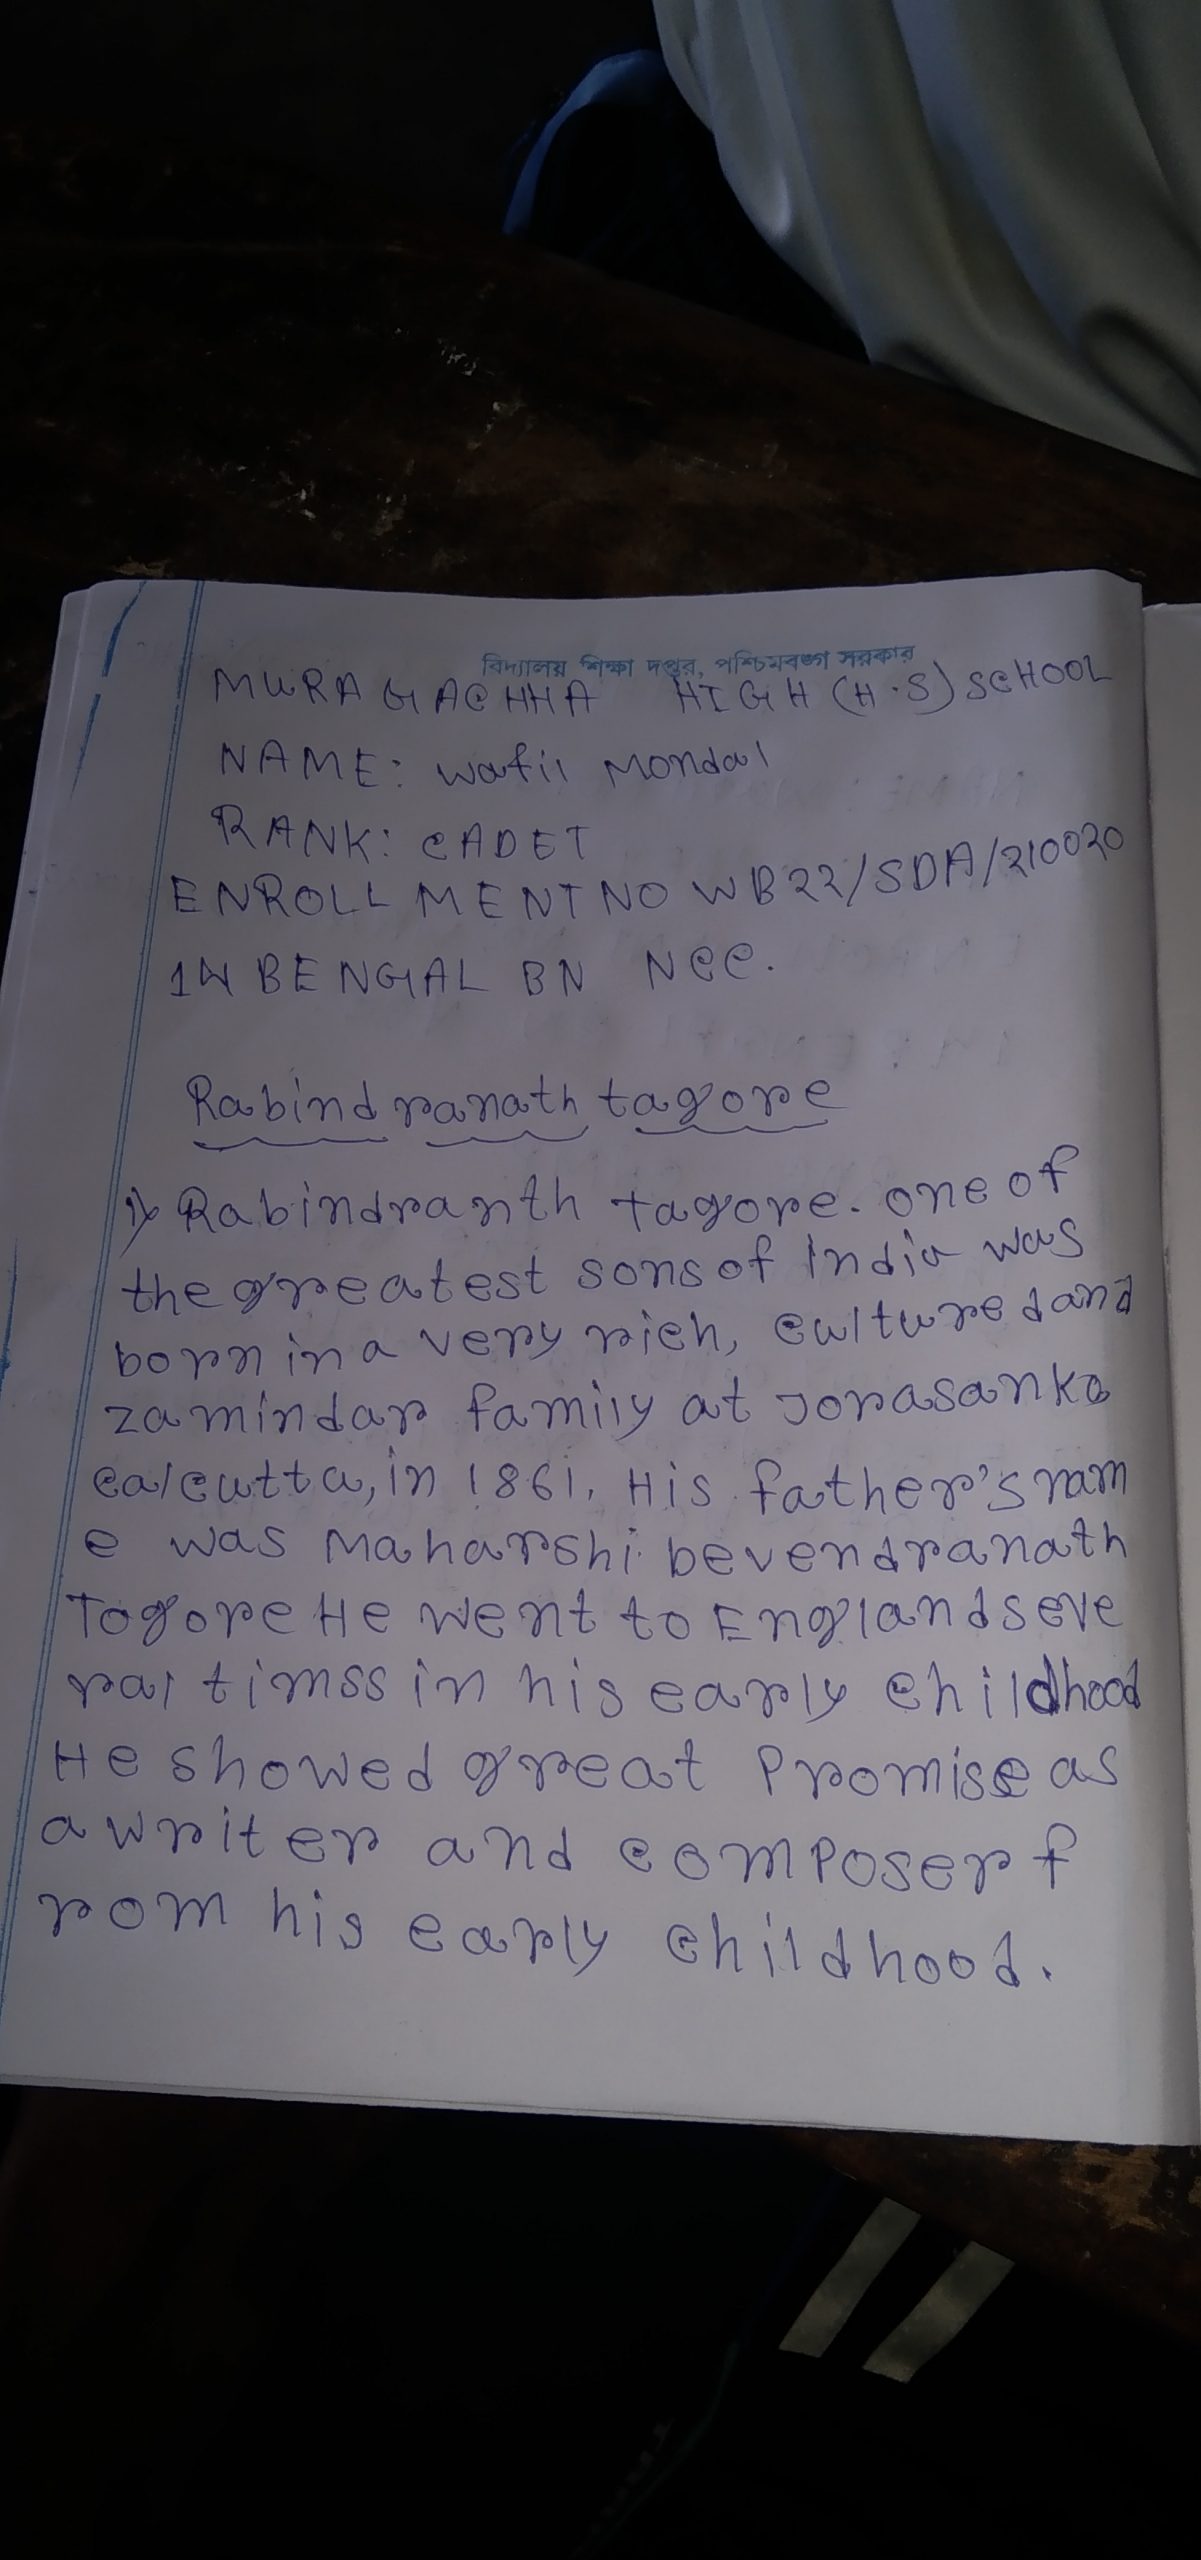 বিদ্যালয় শিক্ষা দপ্তর, পশ্চিমবঙ্গ সরকার
MURAGACHHA HIGH (H.S) SCHOOL
NAME: Wafil Mondal
RANK: CADET
ENROLLMENT NO WB22/SDA/210020
1W BENGAL BN NCC.
Rabindranath tagore
1) Rabindranth Tagore. one of
the greatest sons of India was
born in a very rich, cultured and
zamindar family at Jorasanka
calcutta, in 1861. His father's nam
e was Maharshi bevendranath
Togore He went to England seve
ral timss in his early childhood
He showed great Promise as
a writer and composer f
rom his early childhood.